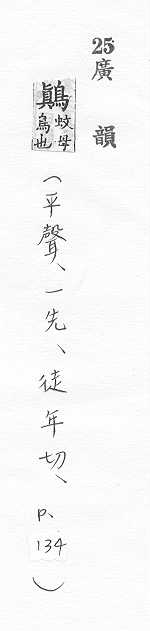 25廣韻
鷏蚊母鳥也(平聲、一先、徒年切、P.134)